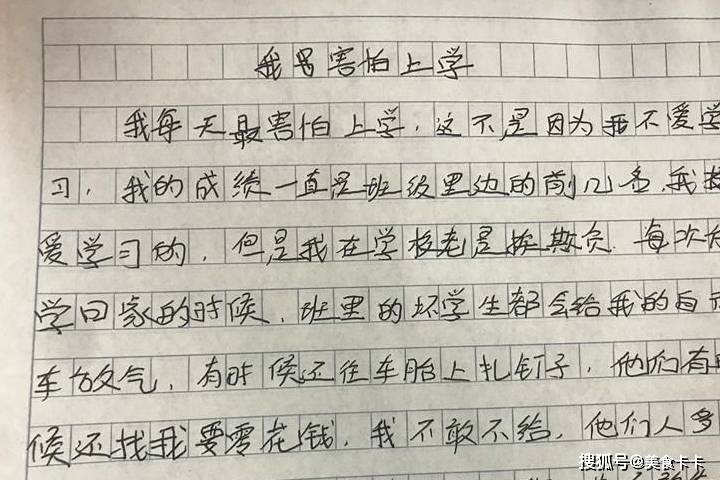 我害怕上学
我每天最害怕上学，这不是因为我不爱学
习，我的成绩一直是班级里边的前几名，我
爱学习的，但是我在学校老是挨欺负，每次
学回家的时候，班里的坏学生都会给我的自
车放气，有时候还往车胎上扎钉子，他们有
候还找我要零花钱，我不敢不给，他们人多
搜狐号@美食卡卡